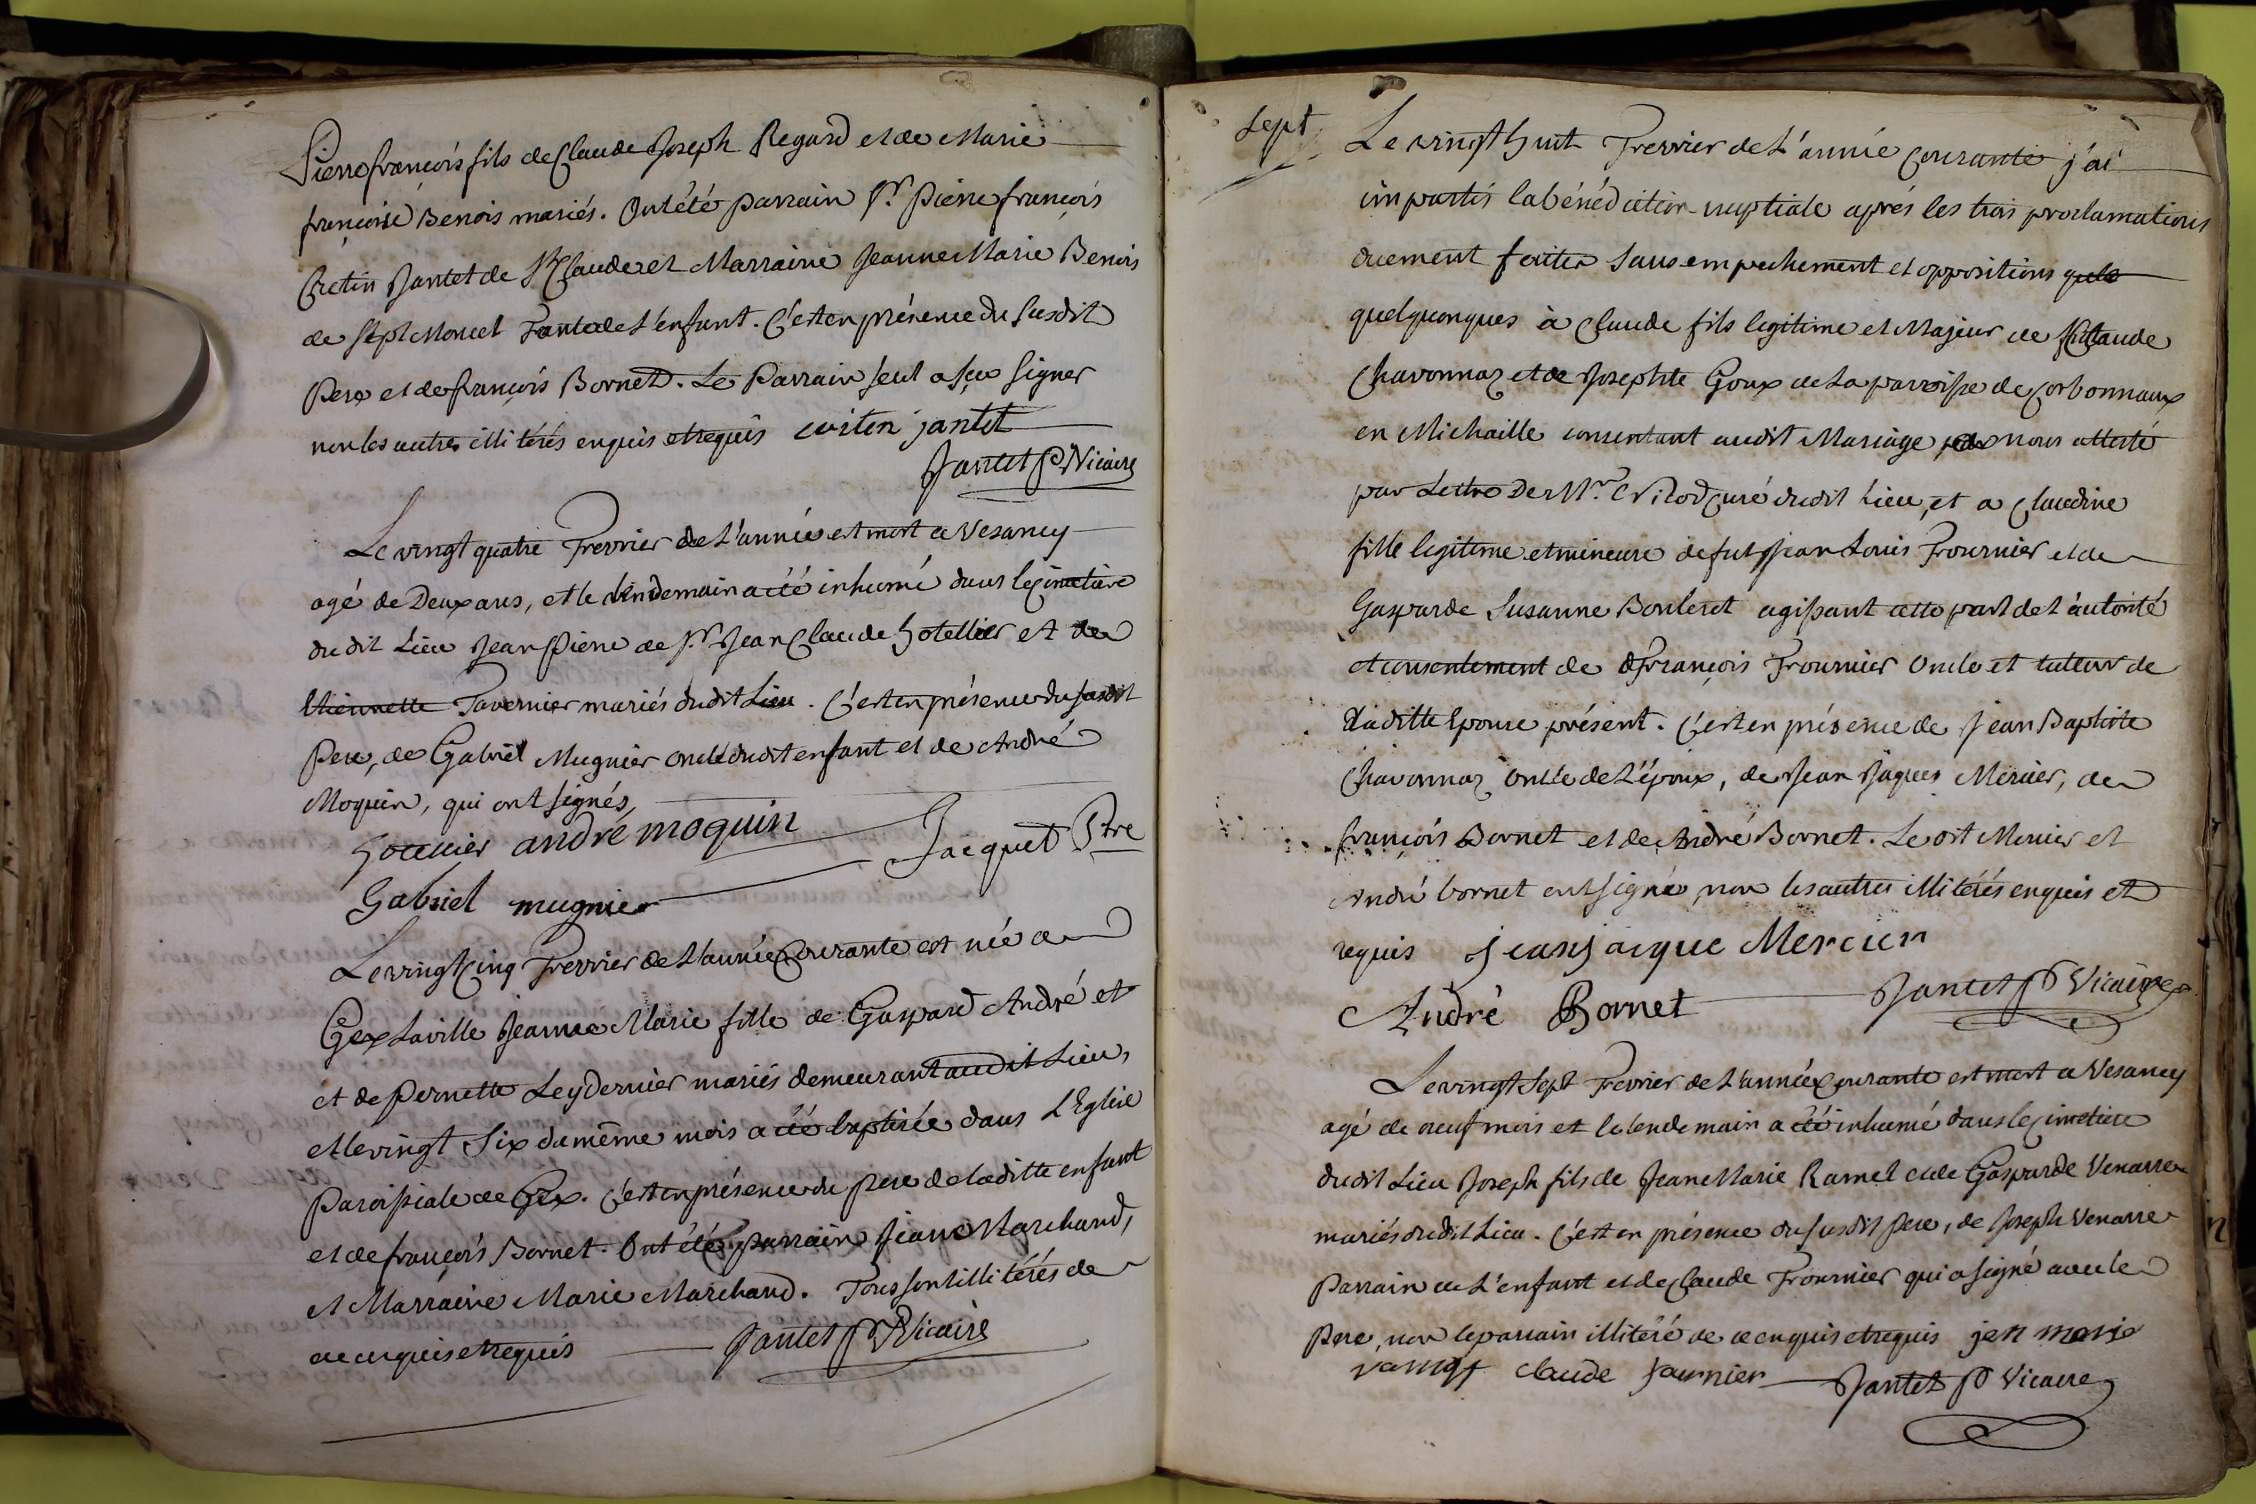 Pierre françois fils de Claude Joseph Regard et de Marie
françoise Benois mariés. Ont été parrain Sr. Pierre françois
Cretin Jantet de St Claude et Marraine Jeanne Marie Benois
de Sept Moncel Tante de L'enfant. C'est en présence du susdit
Pere et de françois Bornet. Le Parrain seul a sçu signer
non les autres illitérés enquis et requis cretin jantet
Jantet P. Vicaire
Le vingt quatre Fevrier de L'année est mort a Vesancy
agé de Deux ans, et le lendemain a été inhumé dans le cimetière
du dit Lieu Jean Pierre de Sr. Jean Claude hotellier et de
Etiennette Tavernier mariés dudit Lieu. C'est en présence du susdit
Pere, de Gabriel Mugnier oncle dudit enfant et de André
Moquin, qui ont signés,
andré moquin
Jacquet Ptre
Gabriel mugnier
Le vingt Cinq Fevrier de L'année Courante est née a
Gex La ville Jeanne Marie fille de Gaspard André et
et de Pernette Leydernier mariés demeurant audit Lieu,
et le vingt Six du même mois a été baptisée dans L'Eglise
Paroissiale de Gex. C'est en présence du pere de la ditte enfant
et de françois Bornet. Ont été parrain Jean Marchand,
et Marraine Marie Marchand. Tous sont illitérés de
ce enquis et requis Jantet P. Vicaire
Sept
Le vingt huit Fevrier de L'année Courante j'ai
imparti la bénédiction nuptiale aprés les trois proclamations
duement faites sans empechement et oppositions
quelquonques à Claude fils legitime et Majeur de Claude
Chavonnaz et de Josephte Goux de La parroisse de Corbonnaux
en Michaille consentant audit Mariage nous attesté
par Lettre De Mr. Nicod Curé dudit Lieu, et a Claudine
fille legitime et mineure de fut Jean Louis Fournier et de
Gasparde Susanne Bonleret agissant cette part de L'autorité
et consentement de François Fournier Oncle et tuteur de
Laditte Epouse présent. C'est en présence de Jean Baptiste
Chavonnaz Oncle de L'époux, de Jean Jaques Mercier, de
françois Bornet et de André Bornet. Le dit Mercier et
André bornet ont signé, non les autres illitérés enquis et
requis jean jacque Mercier
André Bornet Jantet P. Vicaire
Le vingt Sept Fevrier de L'année Courante est mort a Vesancy
agé de neuf mois et le lendemain a été inhumé dans le cimetiere
dudit Lieu Joseph fils de Jean Marie Ramel et de Gasparde Venarre
mariés dudit Lieu. C'est en présence du susdit Pere, de Joseph Venarre
Parrain de L'enfant et de Claude Fournier qui a signé avec le
Pere, non le parrain illitéré de ce enquis et requis jen marie
claude fournier Jantet P Vicaire